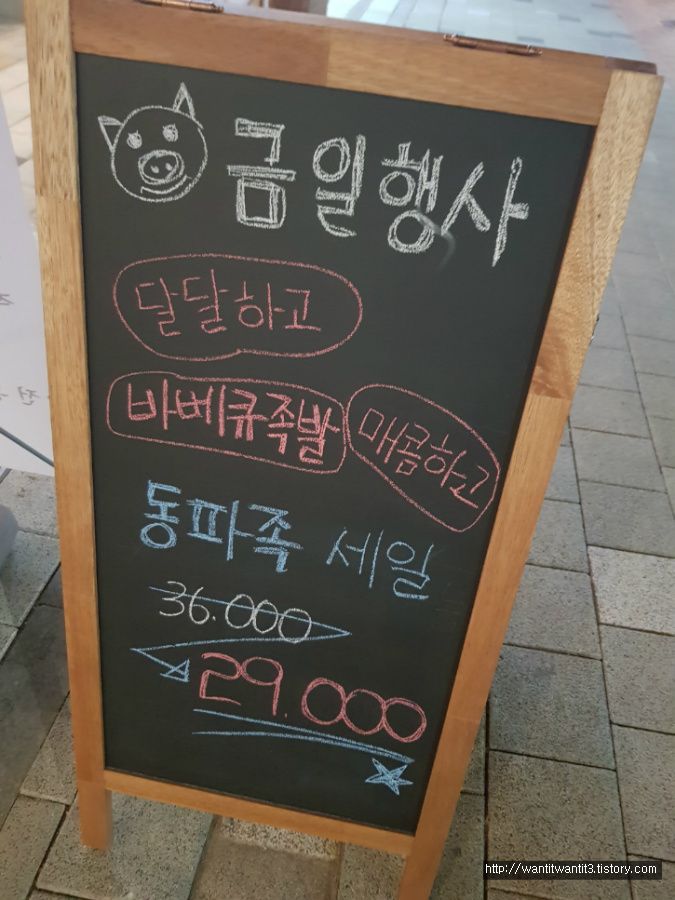 금일행사
달달하고
바베큐족발 매콤하고
동파족 세일
36.000
29.000
http://wantitwantit3.tistory.com